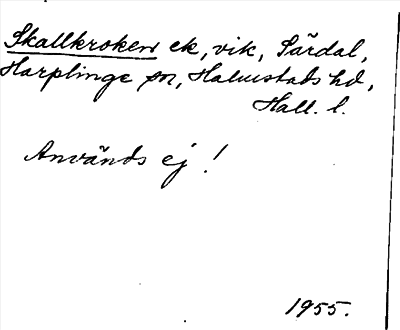 Skallkroken ek, vik, Särdal,
Harplinge sn, Halmstads hd,
Hall. l.
Används ej!
1955.